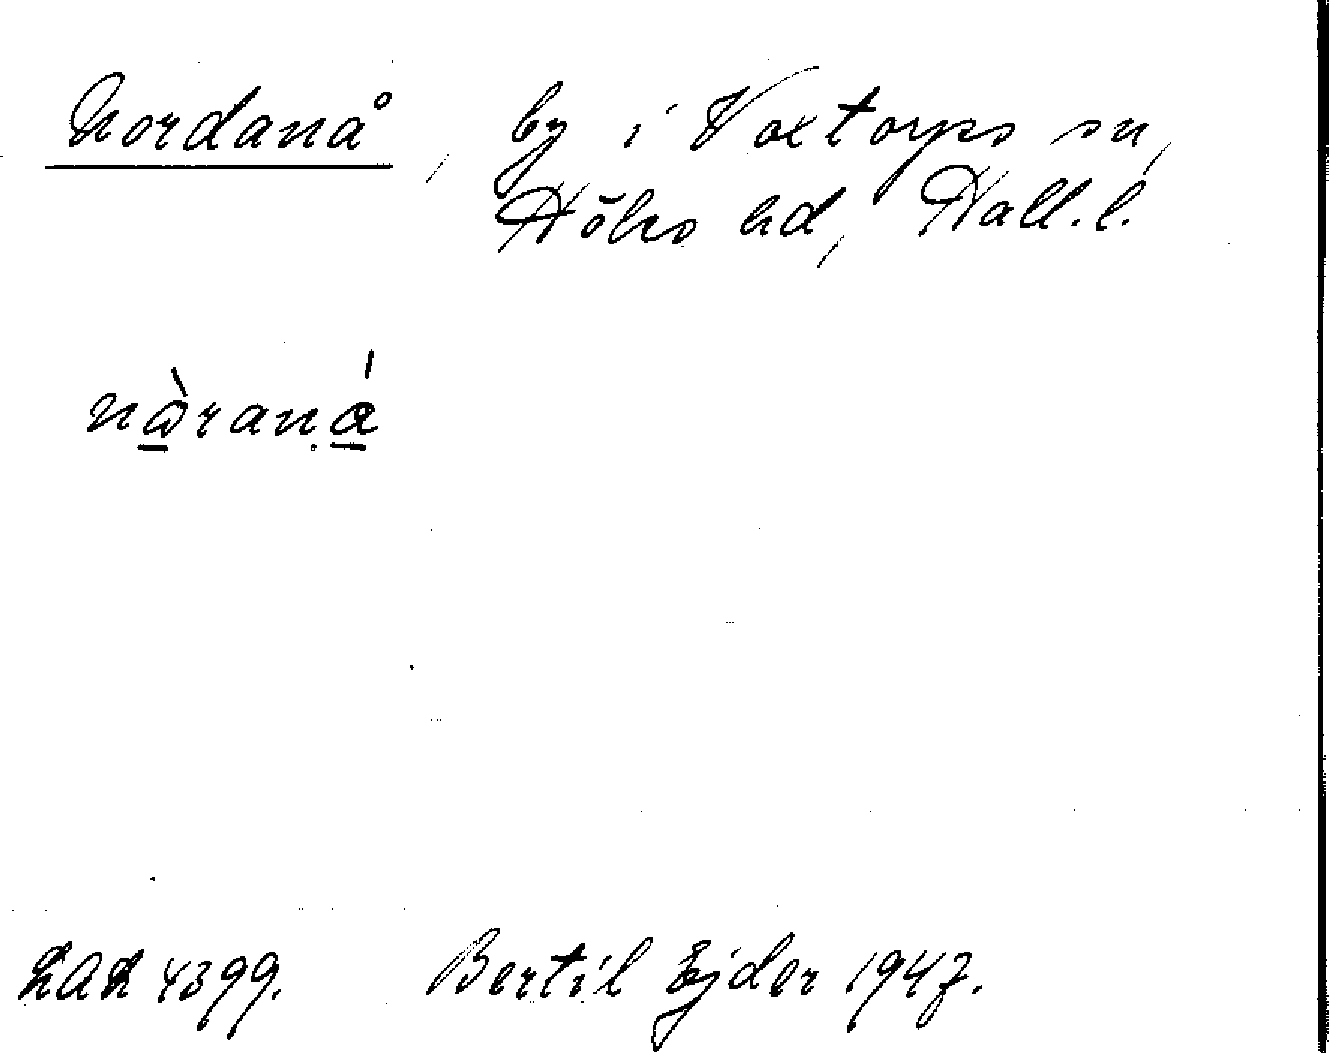 Nordanå, by i Voxtorps sn,
Höks hd, Hall.l.
nàraná
LAL 4399. Bertil Ejder 1947.